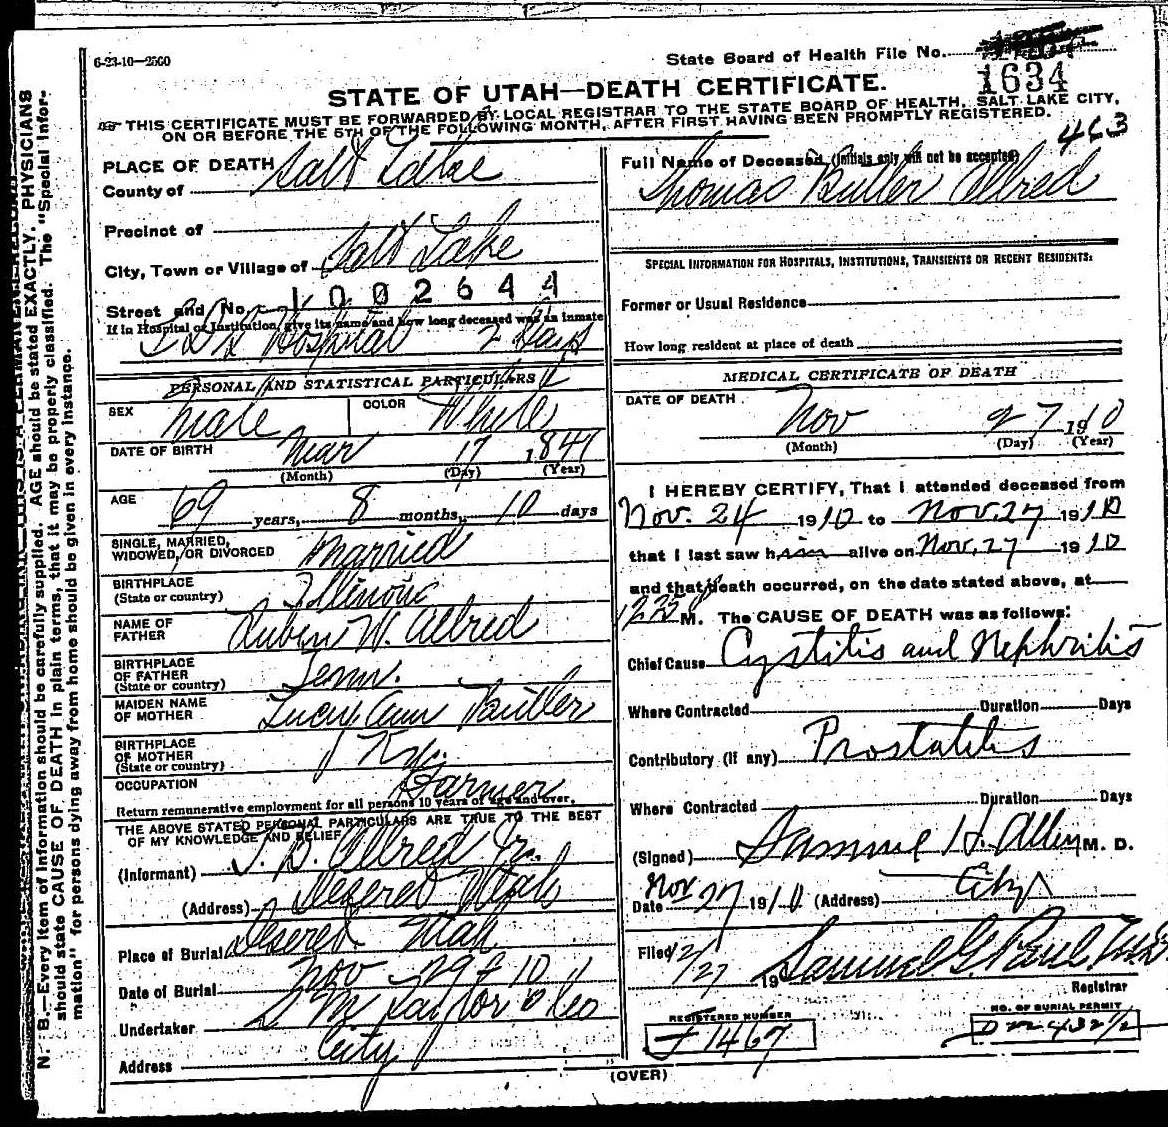 6-23-10—2500
State Board of Health File No.
1634
STATE OF UTAH—DEATH CERTIFICATE.
THIS CERTIFICATE MUST BE FORWARDED BY LOCAL REGISTRAR TO THE STATE BOARD OF HEALTH, SALT LAKE CITY,
ON OR BEFORE THE 5TH OF THE FOLLOWING MONTH, AFTER FIRST HAVING BEEN PROMPTLY REGISTERED.
463
PLACE OF DEATH
County of Salt Lake
Precinct of
City, Town or Village of Salt Lake
Street and No. 1002644
If in Hospital or Institution, give its name and how long deceased was an inmate
LDS Hospital 2 Days
PERSONAL AND STATISTICAL PARTICULARS
SEX Male COLOR White
DATE OF BIRTH Mar 17 1841
(Month) (Day) (Year)
AGE 69 years, 8 months, 10 days
SINGLE, MARRIED,
WIDOWED, OR DIVORCED Married
BIRTHPLACE
(State or country) Illinois
NAME OF
FATHER Ruben W. Allred
BIRTHPLACE
OF FATHER
(State or country) Tenn.
MAIDEN NAME
OF MOTHER Lucy Ann Butler
BIRTHPLACE
OF MOTHER
(State or country) Ky.
OCCUPATION Farmer
Return remunerative employment for all persons 10 years of age and over.
THE ABOVE STATED PERSONAL PARTICULARS ARE TRUE TO THE BEST
OF MY KNOWLEDGE AND BELIEF
(Informant) T. B. Allred Jr.
(Address) Deseret Utah
Place of Burial Deseret Utah
Date of Burial Nov 29th 10
Undertaker S M Taylor & Co
Address City
Full Name of Deceased (Initials only will not be accepted)
Thomas Butler Allred
SPECIAL INFORMATION FOR HOSPITALS, INSTITUTIONS, TRANSIENTS OR RECENT RESIDENTS:
Former or Usual Residence
How long resident at place of death
MEDICAL CERTIFICATE OF DEATH
DATE OF DEATH Nov 27 1910
(Month) (Day) (Year)
I HEREBY CERTIFY, That I attended deceased from
Nov. 24 1910 to Nov. 27 1910
that I last saw him alive on Nov. 27 1910
and that death occurred, on the date stated above, at
1225 M. The CAUSE OF DEATH was as follows:
Chief Cause Cystitis and Nephritis
Where Contracted Duration Days
Contributory (if any) Prostatitis
Where Contracted Duration Days
(Signed) Samuel H. Allen M. D.
Date Nov 27 1910 (Address) City
Filed 12/27 19 Samuel G. Paul
Registrar
REGISTERED NUMBER
J 1467
NO. OF BURIAL PERMIT
(OVER)
N. B.—Every item of information should be carefully supplied. AGE should be stated EXACTLY. PHYSICIANS
should state CAUSE OF DEATH in plain terms, that it may be properly classified. The "Special Infor-
mation" for persons dying away from home should be given in every instance.